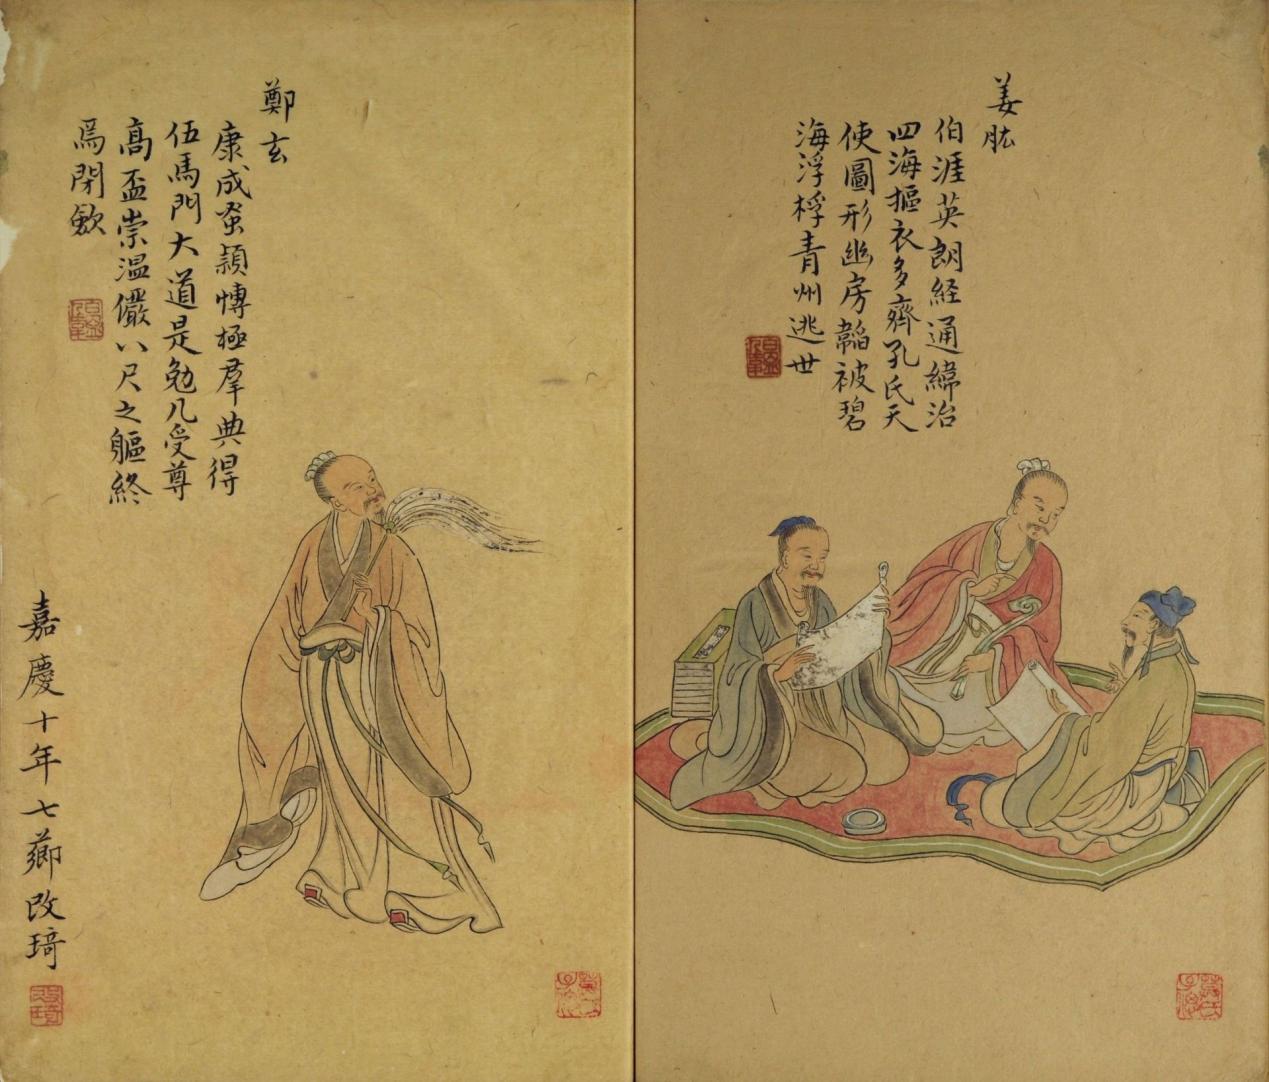 姜肱
伯涯英朗経通緯治
四海摳衣多齊孔氏天
使圖形幽房韜被碧
海浮桴青州逃世
鄭玄
康成蚤穎愽極羣典得
伍馬門大道是勉几受尊
高盃崇温儼八尺之軀終
焉閉歛
嘉慶十年七薌改琦